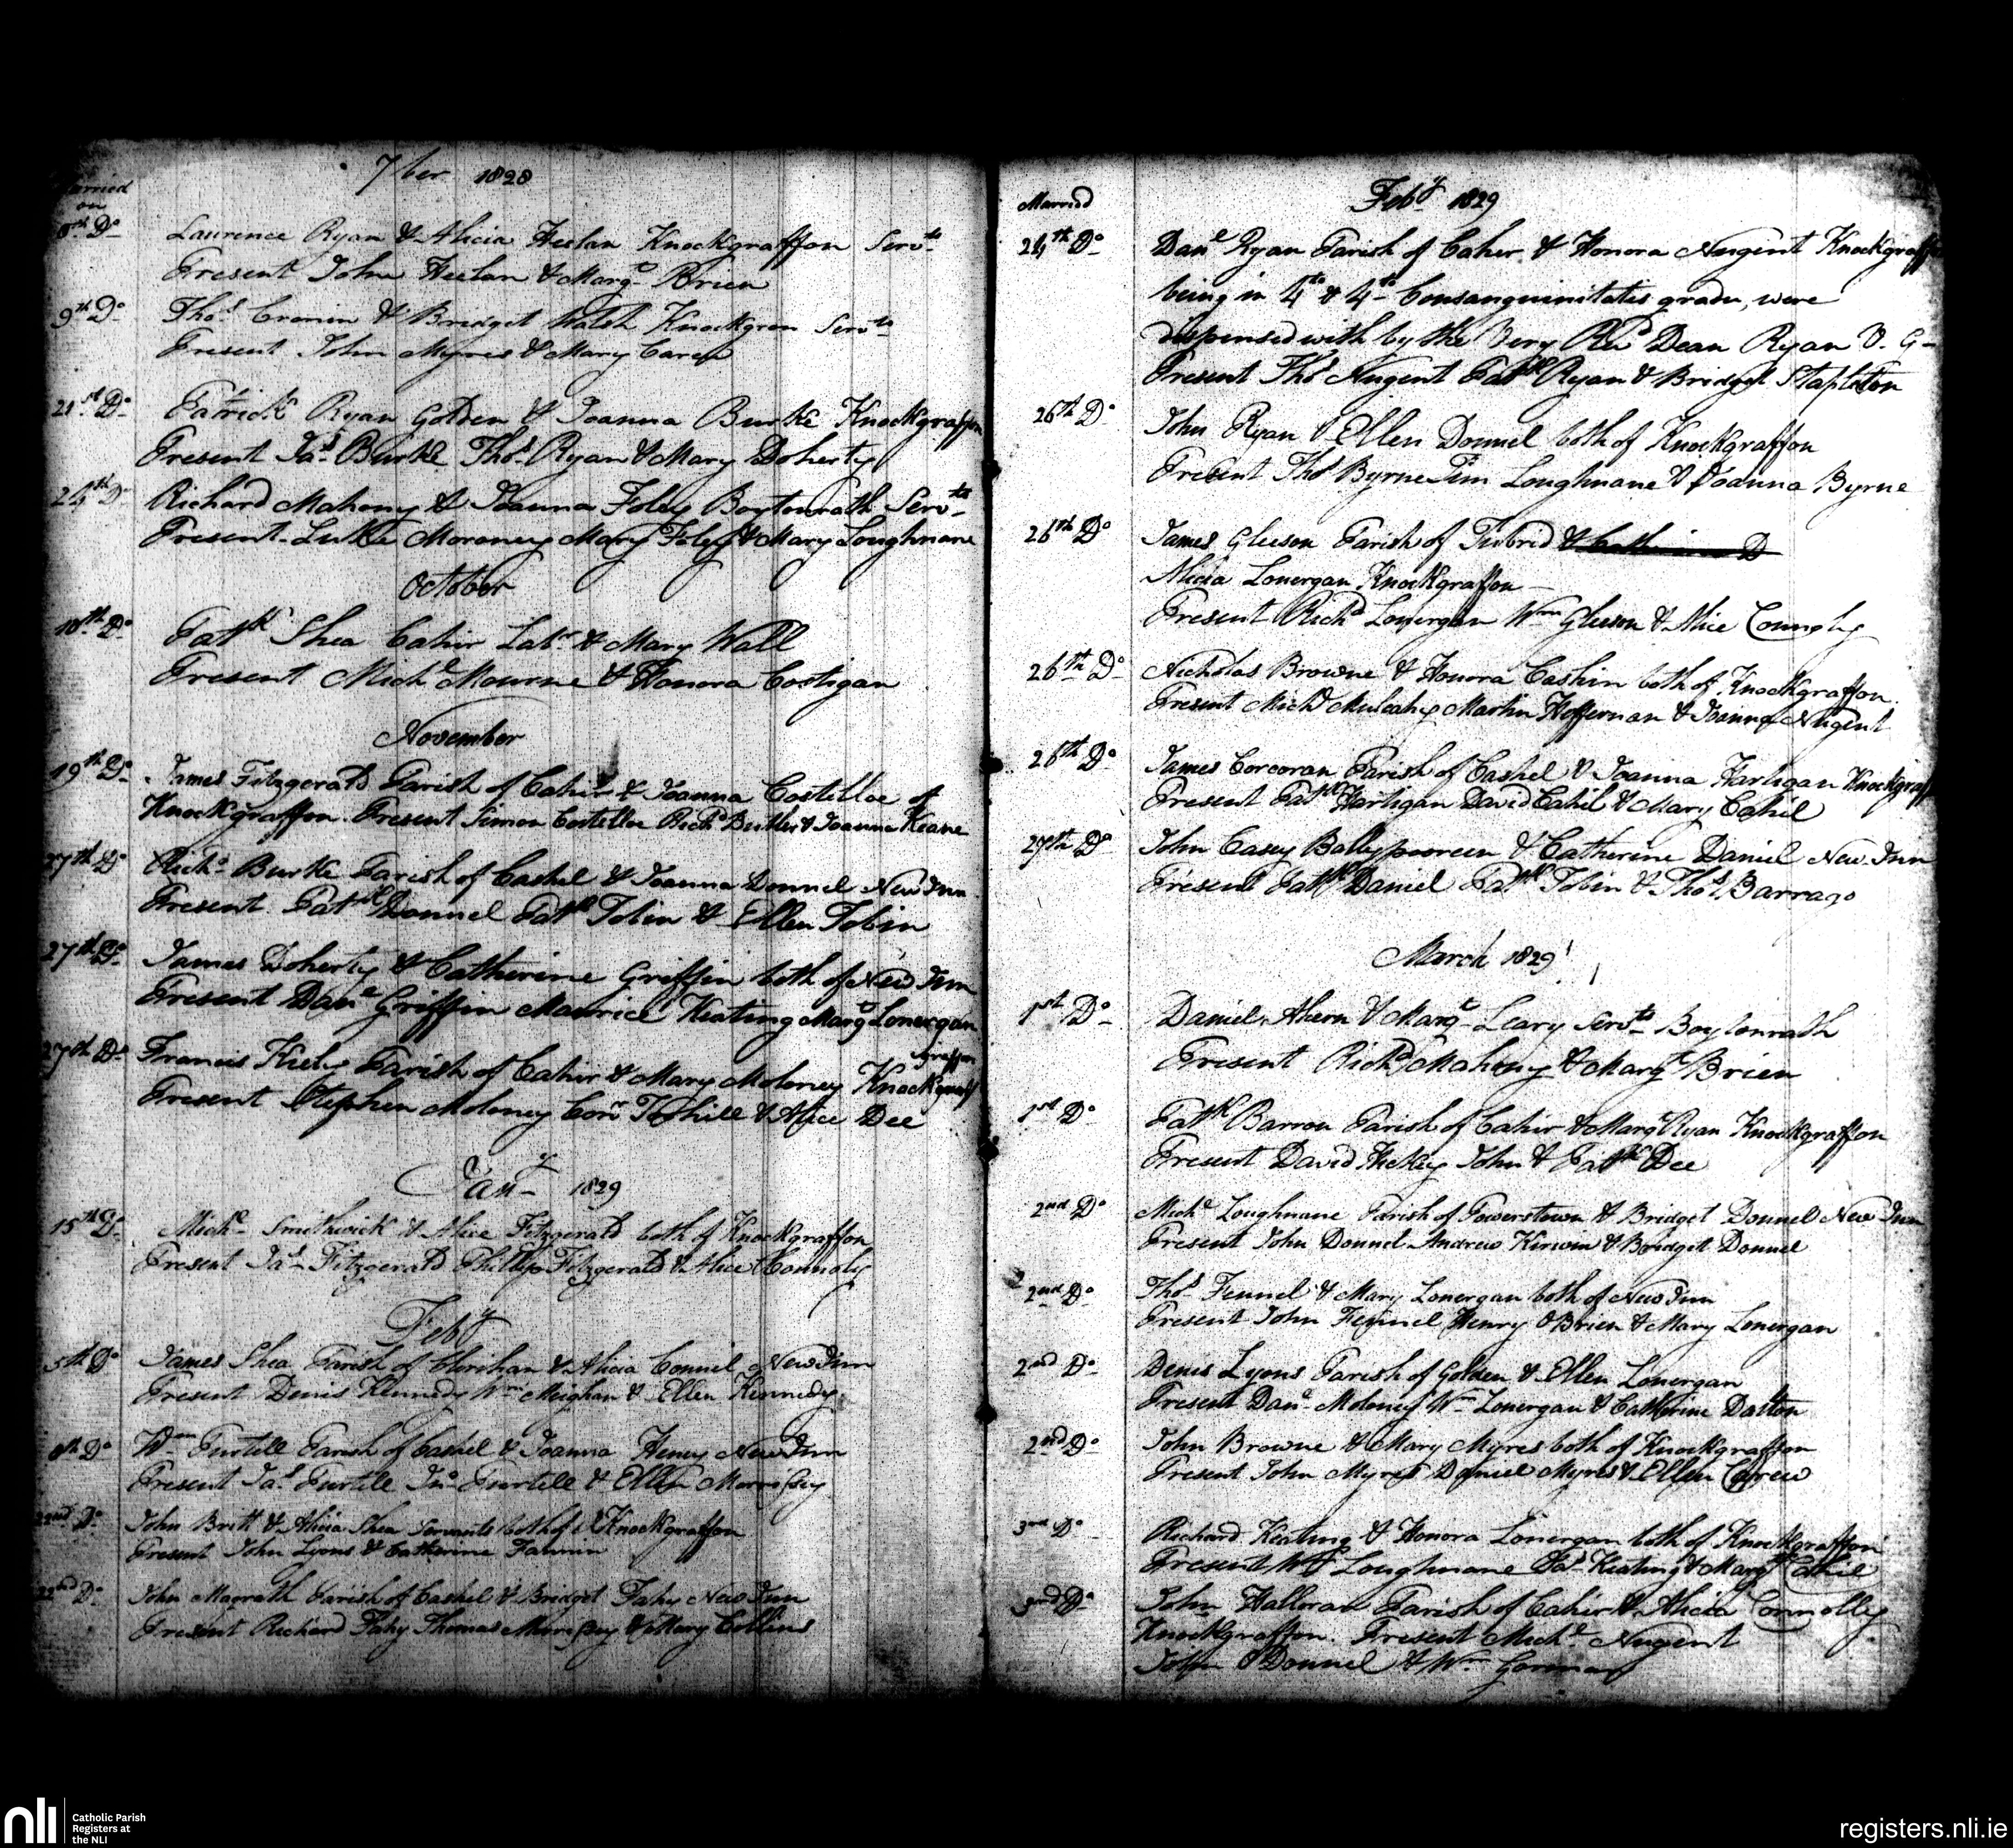 7ber 1828
Married
on
8th Do Laurence Ryan & Alicia Heelan Knockgraffon Servts
Present John Heelan & Margt Brien
9th Do Thos Cronin & Bridget Walsh Servts
Present John Myres & Mary
21st Do Patrick Ryan Golden & Joanna Burke Knockgraffon
Present Jas Burke Thos Ryan & Mary Doherty
24th Do Richard Mahony & Joanna Foley Boytonrath Servts
Present Luke Moroney Mary Foley & Mary Loughnane
October
10th Do Patk Shea Cahir Labr & Mary Wall
Present Michl Mourne & Honora Costigan
November
19th Do James Fitzgerald Parish of Cahir & Joanna Costelloe of
Knockgraffon. Present Simon Costelloe Richd Butler & Joanna Keane
27th Do Richd Burke Parish of Cashel & Joanna Donnel New Inn
Present Patk Donnel Patk Tobin & Ellen Tobin
27th Do James Doherty & Catherine Griffin both of New Inn
Present Danl Griffin Maurice Keating Margt Lonergan
27th Do Francis Kiely Parish of Cahir & Mary Moloney Knockgraffon
Present Stephen Moloney Corns Tohill & Alice Dee
Jany 1829
15th Do Michl Smithwick & Alice Fitzgerald both of Knockgraffon
Present Jas Fitzgerald Phillip Fitzgerald & Alice Connoly
Feby
5th Do James Shea Parish of Clerihan & Alicia Connel New Inn
Present Denis Kennedy Wm Meighan & Ellen Kennedy
8th Do Wm Purtell Parish of Cashel & Joanna Heney New Inn
Present Jas Purtell Jno Purtell & Ellen Morrissey
22nd Do John Britt & Alicia Shea Servants both of Knockgraffon
Present John Lyons & Catherine Fannin
22nd Do John Magrath Parish of Cashel & Bridget Fahy New Inn
Present Richard Fahy Thomas Morissey & Mary Collins
Married Feby 1829
24th Do Danl Ryan Parish of Caher & Honora Nugent Knockgraffon
being in 4to & 4to Consanguinitatis gradu, were
dispensed with by the Very Revd Dean Ryan V. G-
Present Thos Nugent Patk Ryan & Bridget Stapleton
26th Do John Ryan & Ellen Donnel both of Knockgraffon
Present Thos Byrne Tim Loughnane & Joanna Byrne
26th Do James Gleeson Parish of Tubrid
Alicia Lonergan Knockgraffon
Present Richd Lonergan Wm Gleeson & Alice Connoly
26th Do Nicholas Browne & Honora Cashin both of Knockgraffon.
Present Michl Mulcahy Martin Heffernan & Joanna Nugent
26th Do James Corcoran Parish of Cashel & Joanna Hartigan Knockgraffon
Present Patk Hartigan David Cahil & Mary Cahil
27th Do John Casey Ballyporeen & Catherine Daniel New Inn
Present Patk Daniel Patk Tobin & Thos Barrago
March 1829
1st Do Daniel Ahern & Margt Leary Servts Boytonrath
Present Richd Mahony & Margt Brien
1st Do Patk Barron Parish of Cahir & Margt Ryan Knockgraffon
Present David Hickey John & Patk Dee
2nd Do Michl Loughnane Parish of Powerstown & Bridget Donnel New Inn
Present John Donnel Andrew Kirwin & Bridget Donnel
2nd Do Thos Fennel & Mary Lonergan both of New Inn
Present John Fennel Henry OBrien & Mary Lonergan
2nd Do Denis Lyons Parish of Golden & Ellen Lonergan
Present Danl Moloney Wm Lonergan & Catherine Dalton
2nd Do John Browne & Mary Myres both of Knockgraffon
Present John Myres Daniel Myres & Ellen Carew
3rd Do Richard Keating & Honora Lonergan both of Knockgraffon
Present Wm Loughnane Jas Keating & Margt Cahil
3rd Do John Halloran Parish of Cahir & Alicia Connolly
Knockgraffon. Present Michl Nugent
John ODonnel & Wm Gorman
nli
Catholic Parish
Registers at
the NLI
registers.nli.ie